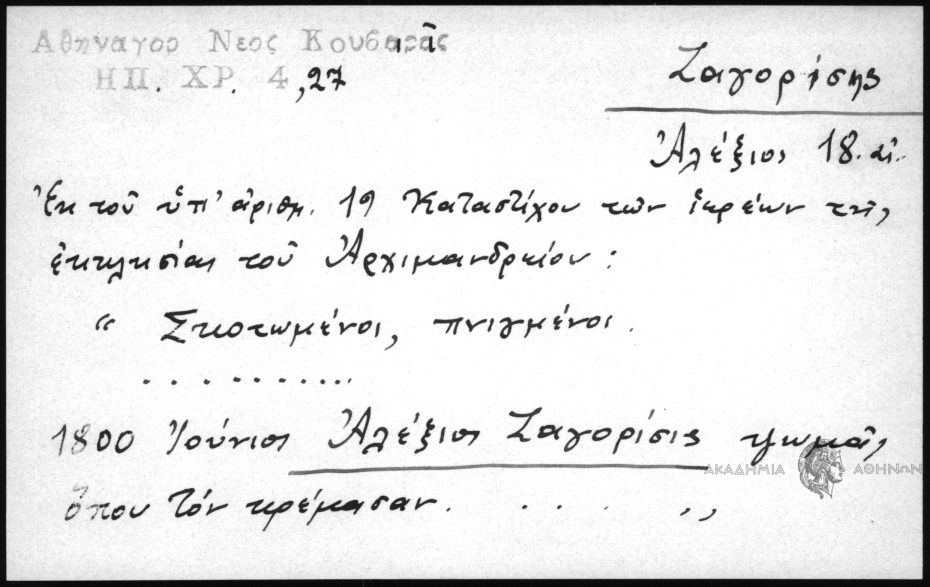 Αθηναγορ Νεος Κουβαρᾶς
ΗΠ. ΧΡ. 4 ,27
Ζαγορίσης
Ἀλέξιος 18. αἰ.
Ἐκ τοῦ ὑπ' ἀριθμ. 19 Καταστίχου τῶν ἱερέων τῆς
ἐκκλησίας τοῦ Ἀρχιμανδρείου:
“ Σκοτωμένοι, πνιγμένοι.
. . . . . . . . . . .
1800 Ἰούνιος Ἀλέξιος Ζαγορίσις ψωμᾶς
ὅπου τόν κρέμασαν. . . . . ,,
ΑΚΑΔΗΜΙΑ ΑΘΗΝΩΝ